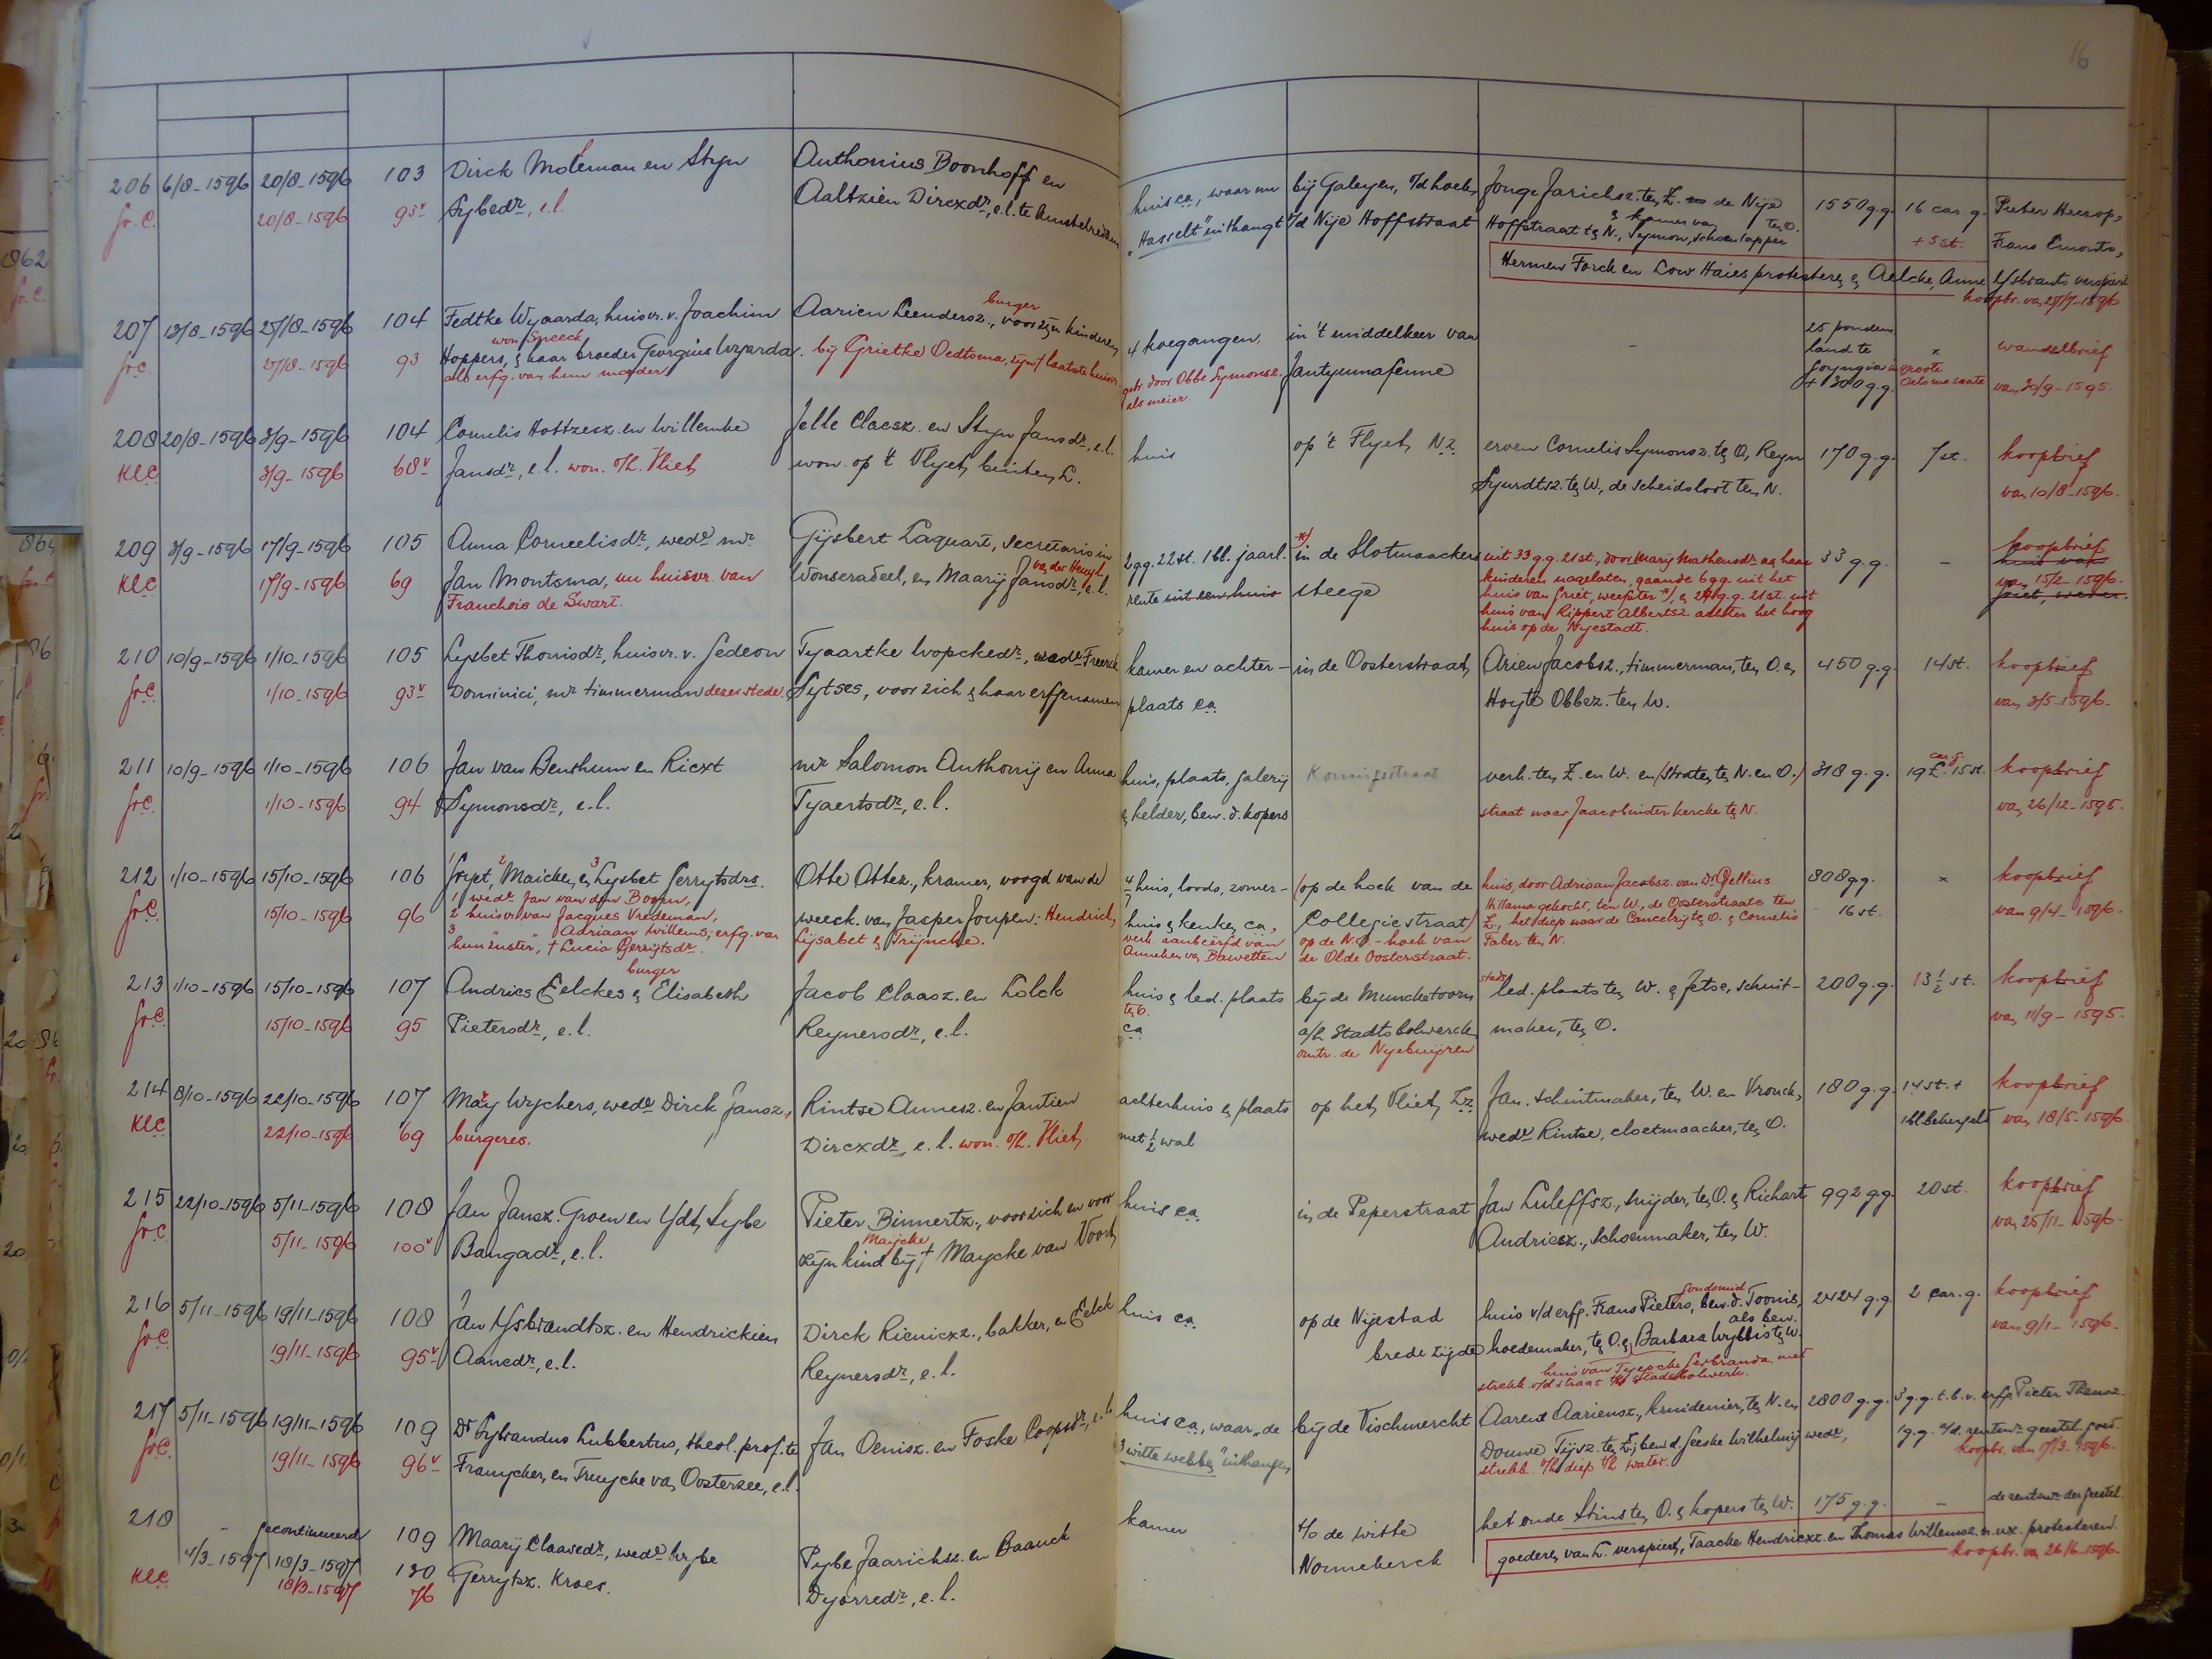 16
206 6/8-1596 20/8-1596 103 Dirck Moleman en Styn Anthonius Boonhoff en huis ca, waar nu bij Galeyen, o/d hoek Jonge Jarichsz. ten Z. de Nije 1550 g.g. 16 car. g. Pieter Heerop,
Gr.C. 20/8-1596 93v Sybedr, e.l. Aaltzien Dircxdr, e.l. te Amstelredam "Hasselt" uithangt v/d Nije Hoffstraat Hoffstraat ten N., & kamer van Symon, schoenlapper ten O. + 5 st. Frans Emonts,
Hermen Forck en Low Haies protesteren & Aelcke, Anne Ysbrants verspiert
koopbr. van 27/7-1596
207 13/8-1596 27/8-1596 104 Fedtke Wyaarda, huisvr. v. Joachim Aarien Leendersz., burger voor zijn kinderen 4 koegangen in 't middelkeer van - 25 ponden x wandelbrief
Gr.C. 27/8-1596 93 Hoppers, won Sneeck & haar broeder Georgius Wyarda. bij Grietke Oedtsma, zijn † laatste huisvr. gebr. door Obbe Symonsz. Jantyumafenne land te groote van 30/9-1595.
als erfg. van hun moeder als meier. + 300 g.g.
208 20/8-1596 3/9-1596 104 Cornelis Hottzesz. en Willemke Jelle Claesz. en Styn Jansdr, e.l. huis op 't Flyet, N.z. erven Cornelis Symonsz. ten O, Reyn 170 g.g. 7 st. koopbrief
KlC 3/9-1596 68v Jansdr, e.l. won. o/h. Vliet won. op 't Vlyet, buiten L. Sjurdtsz. ten W., de scheidsloot ten N. van 10/8-1596.
209 3/9-1596 17/9-1596 105 Anna Corneelisdr, wede mr Gijsbert Laquart, secretaris in 2 gg. 22 st. 1 bl. jaarl. in de Slotmaackers uit 33 g.g. 21 st., door Marij Matheusdr aan haar 33 g.g. - koopbrief
KlC 17/9-1596 69 Jan Montsma, nu huisvr. van Wonseradeel, en Maarij Jansdr, e.l. rente uit een huis steege kinderen nagelaten, gaande 6 gg. uit het van 15/2-1596.
Franchois de Swart. huis van Griet, weefster, & 27 g.g. 21 st. uit
huis van Rippert Albertsz. achter het hoog
huis op de Nyestadt.
210 10/9-1596 1/10-1596 105 Lysbet Thonisdr, huisvr. v. Gedeon Tyaartke Wopckedr, wede Freerck kamer en achter- in de Oosterstraat Arien Jacobsz., timmerman, ten O. en 450 g.g. 14 st. koopbrief
Gr.C. 1/10-1596 93v Dominici, mr timmerman dezer stede. Sytses, voor zich & haar erffgenamen plaats ca. Hoyte Obbez. ten W. van 3/5-1596.
211 10/9-1596 1/10-1596 106 Jan van Benthum en Ricxt mr Salomon Anthonij en Anna huis, plaats, galerij Koningsstraat verk. ten Z. en W. en (straten ten N. en O.) 318 g.g. 19 car g. 15 st. koopbrief
Gr.C. 1/10-1596 94 Symonsdr, e.l. Tyaertsdr, e.l. & kelder, bew. d. kopers straat naar Jaacobinder kercke ten N. van 26/12-1595.
212 1/10-1596 15/10-1596 106 Griet, Maicke, & Lysbet Gerrytsdrs. Otte Ottez., kramer, voogd van de huis, loods, zomer- (op de hoek van de huis, door Adriaan Jacobsz. van Dr Gellius 808 gg. x koopbrief
Gr.C. 15/10-1596 96 1 wede Jan van den Boom, weeck. van Jasper Joupen: Hendrick, huis & keuken ca, Collegiestraat) gekocht, ten W., de Oosterstraate ten 16 st. van 9/4-1596.
2 huisvr. van Jacques Vredeman, Lijsabet & Trijncke. verk. aanbeërfd van op de N.O-hoek van Z., het diep naar de Cancelrij ten O. & Cornelis
3 " " Adriaan Willems; erfg. van Anneken van Bawetten de Olde Oosterstraat. Faber ten N.
hun zuster, † Lucia Gerrytsdr.
213 1/10-1596 15/10-1596 107 Andries Eelckes & Elisabeth burger Jacob Claasz. en Lolck huis & led. plaats bij de Muncketoorn stads led. plaats ten W. & Jetse, schuit- 200 g.g. 13 1/2 st. koopbrief
Gr.C. 15/10-1596 95 Pietersdr, e.l. Reynersdr, e.l. ten O. ca a/h Stadtsbolwerck maker, ten O. van 11/9-1595.
omtr. de Nyebuijren
214 8/10-1596 22/10-1596 107 Mary Wychers, wede Dirck Jansz., Rintse Annesz. en Jantien achterhuis & plaats op het Vliet, Z.z. Jan, schuitmaker, ten W. en Vrouck, 180 g.g. 14 st. + koopbrief
KlC 22/10-1596 69 burgeres. Dircxdr, e.l. won. o/h. Vliet met 1/2 wal wede Rintse, cloetmaacker, ten O. van 18/5-1596
215 22/10-1596 5/11-1596 108 Jan Jansz. Groen en Ydt, Sybe Pieter Binnertz., voor zich en voor huis ca. in de Peperstraat Jan Luleffsz., snijder, ten O. & Richart 992 gg. 20 st. koopbrief
Gr.C. 5/11-1596 100v Bangadr, e.l. zijn kind Maijcke bij † Maycke van Voort Andriesz., schoenmaker, ten W. van 25/11-1596.
216 5/11-1596 19/11-1596 108 Jan Ysbrandtsz. en Hendrickien Dirck Rienicxz., bakker, en Eelck huis ca. op de Nijestad huis v/d erfg. Frans Pieters, goudsmid, bew. d. Toonis, 2424 g.g. 2 car. g. koopbrief
Gr.C. 19/11-1596 95v Aanedr, e.l. Reynersdr, e.l. brede zijde hoedemaker, ten O. & Barbara Wybbis als bew. ten W. van 9/1-1596.
huis van Tyepcke Gerbranda. met
strekk. v/d straat t/h stadsbolwerk.
217 5/11-1596 19/11-1596 109 Dr Sybrandus Lubbertus, theol. prof. te Jan Oenisz. en Foske Coopsdr, e.l. huis ca, waar "de bij de Vischmerckt Aarent Aariensz., kruidenier, ten N. en 2800 g.g. 3 g.g. t.b.v. erfg. Pieter Thonsz.
Gr.C. 19/11-1596 96v Franycker, en Truycke van Oosterzee, e.l. 3 witte webben" uithangen Douwe Tijsz. ten Z., bew. d. Geeske Wilhelmij wede, 1 g.g. a/d. rentmr. geestel. goed.
strekk. v/h diep t/h water. koopbr. van 7/3-1596.
218 - gecontinueerd 109 Maarij Claasedr, wede Wybe Pybe Jaarichsz. en Baauck kamer t/o de witte het oude Stins ten O. & kopers ten W. 175 g.g. - de rentmr. der Geestel.
4/3-1597 18/3-1597 130 Gerrytsz. Kroes. Dyorredr, e.l. Nonnekerck goederen van L. verspiert, Taacke Hendricxz. en Thomas Willemsz. n. ux. protesteren.
KlC 18/3-1597 76 koopbr. van 26/6-1596.